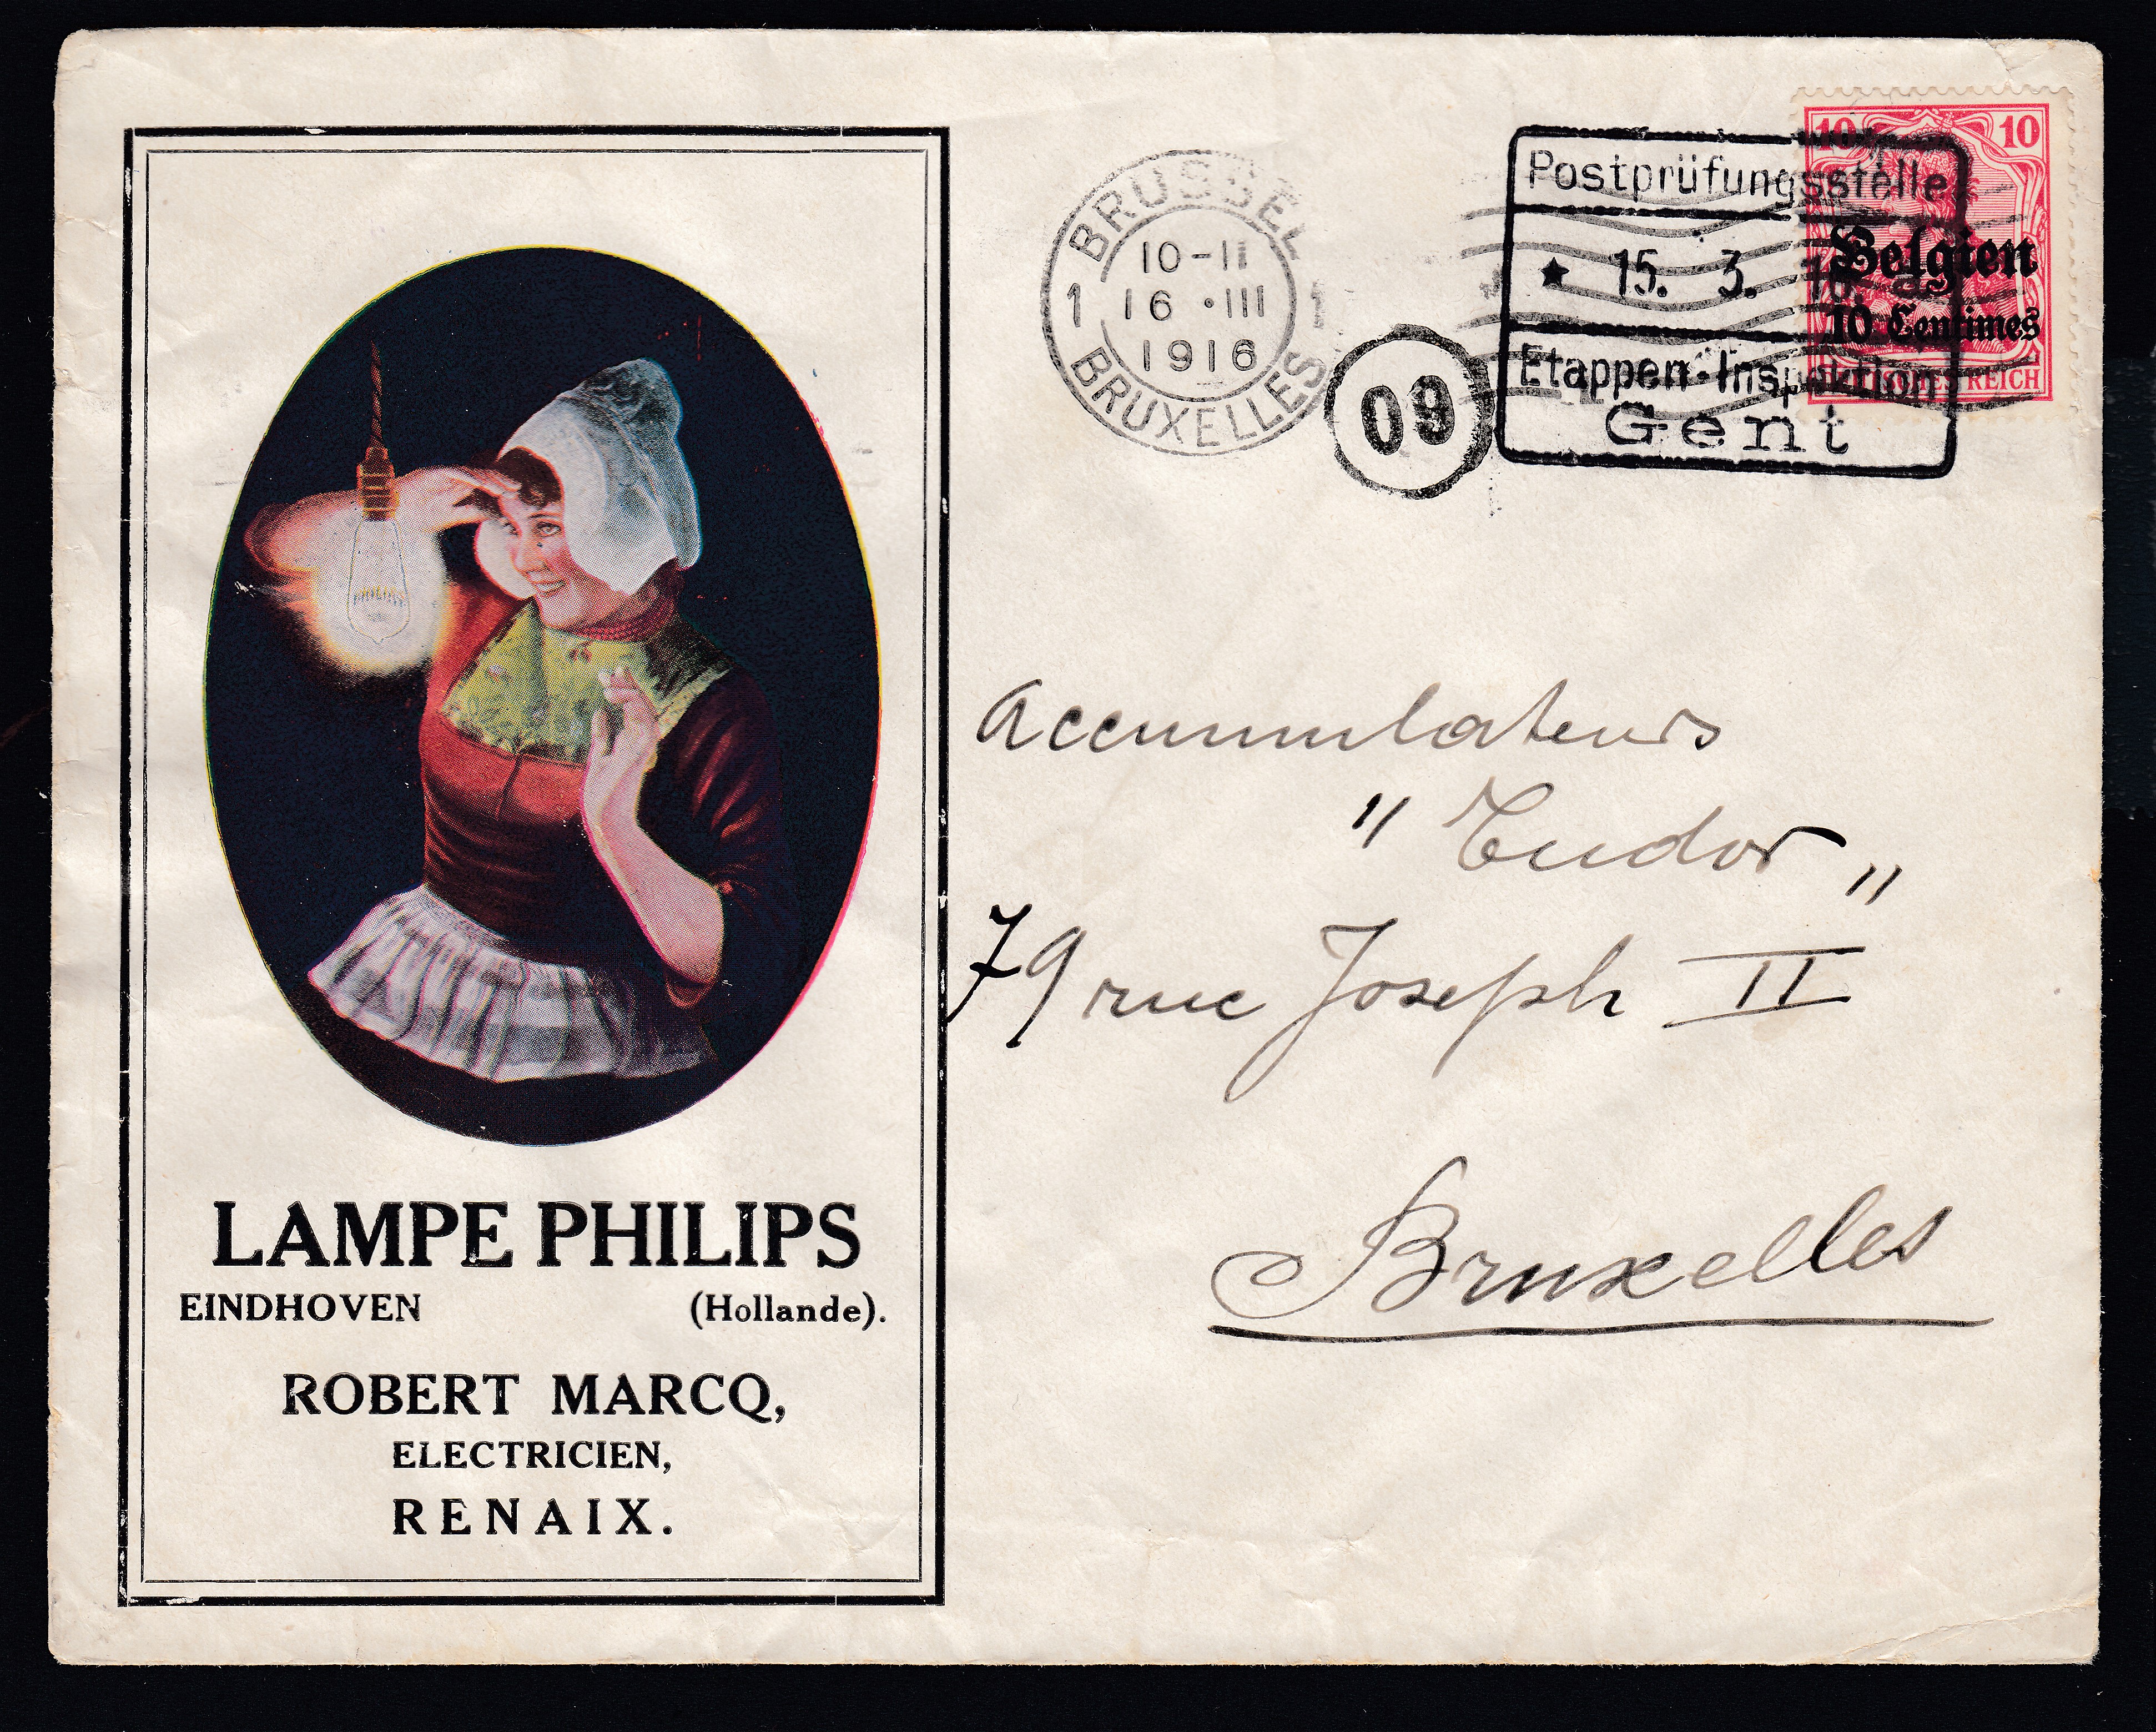 LAMPE PHILIPS
EINDHOVEN (Hollande).
ROBERT MARCQ,
ELECTRICIEN,
RENAIX.
BRUSSEL
1 10-11 1
16 •III
1916
BRUXELLES
09
Postprüfungsstelle
★ 15. 3. 16.
Etappen-Inspektion
Gent
10 10
Belgien
10 Centimes
REICH
Accumulateurs
"Tudor„
79 rue Joseph II
Bruxelles